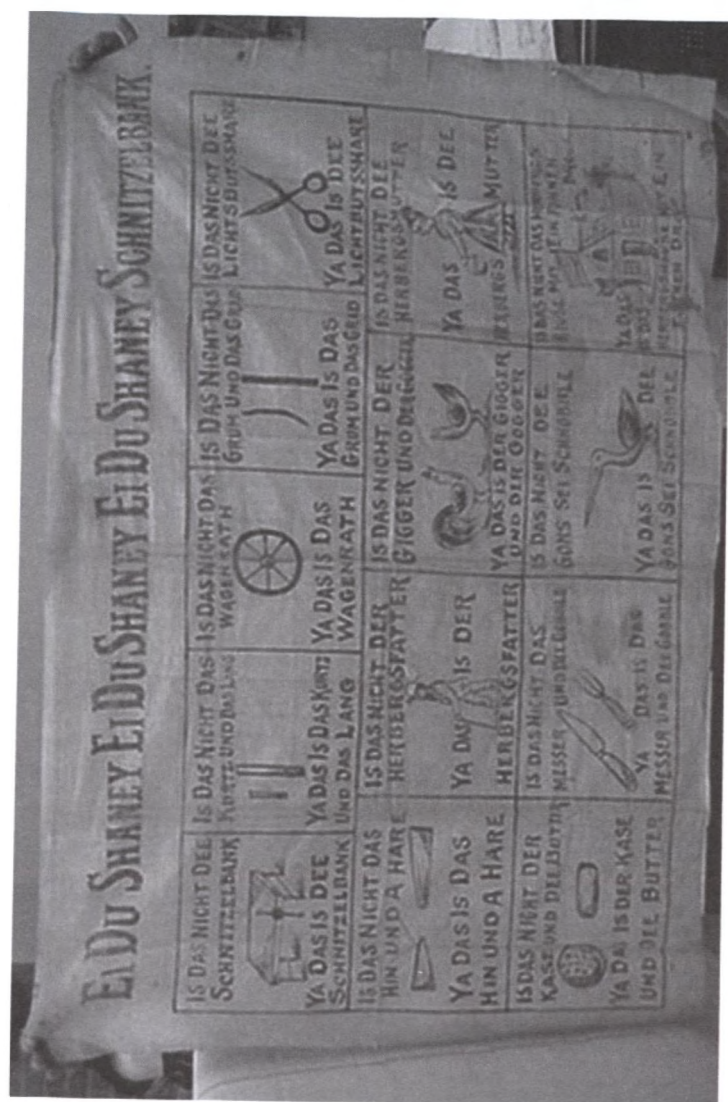 EI DU SHANEY EI DU SHANEY EI DU SHANEY SCHNITZELBANK.
IS DAS NICHT DEE
SCHNITZELBANK
YA DAS IS DEE
SCHNITZELBANK
IS DAS NICHT DAS
KURTZ UND DAS LANG
YA DAS IS DAS KURTZ
UND DAS LANG
IS DAS NICHT DAS
WAGENRATH
YA DAS IS DAS
WAGENRATH
IS DAS NICHT DAS
GRUM UND DAS GRID
YA DAS IS DAS
GRUM UND DAS GRID
IS DAS NICHT DEE
LICHTSBUTSSHARE
YA DAS IS DEE
LICHTBUTSSHARE
IS DAS NICHT DAS
HIN UND A HARE
YA DAS IS DAS
HIN UND A HARE
IS DAS NICHT DER
HERBERGSFATTER
YA DAS IS DER
HERBERGSFATTER
IS DAS NICHT DER
GIGGER UND DER GOGGER
YA DAS IS DER GIGGER
UND DER GOGGER
IS DAS NICHT DEE
HERBERGSMUTTER
YA DAS IS DEE
HERBERGS MUTTER
IS DAS NICHT DER
KASE UND DEE BUTDR
YA DAS IS DER KASE
UND DEE BUTTER
IS DAS NICHT DAS
MESSER UND DEE GABBLE
YA DAS IS DAS
MESSER UND DEE GABBLE
IS DAS NICHT DEE
GONS SEI SCHNOBBLE
YA DAS IS DEE
GONS SEI SCHNOBBLE
IS DAS NICHT DAS
YA DAS
IS DAS